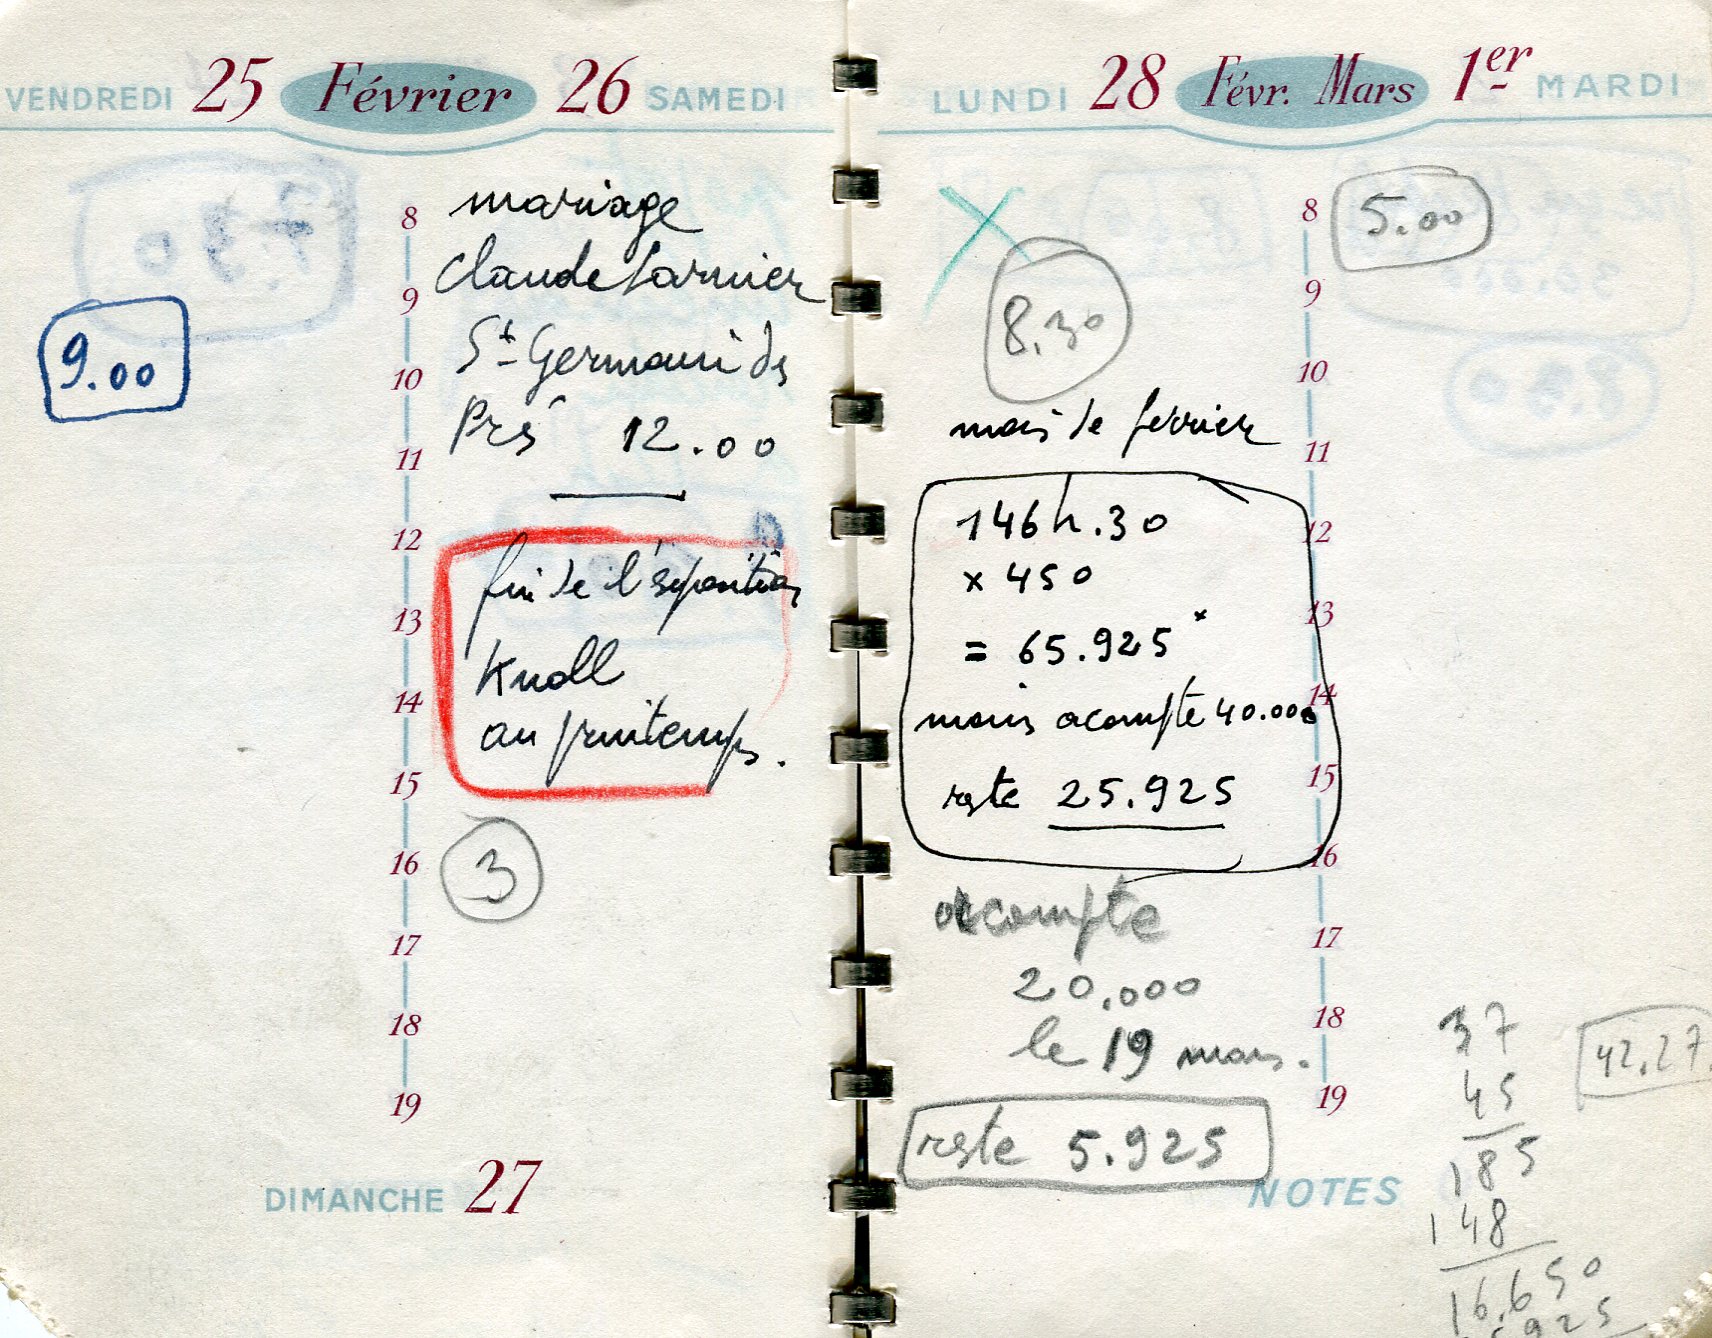 VENDREDI 25 Février 26 SAMEDI
9.00
8
9
10
11
12
13
14
15
16
17
18
19
mariage
Claude
St Germain des
Prés 12.00
fin de l'exposition
Knoll
au printemps.
3
DIMANCHE 27
LUNDI 28 Févr. Mars 1er MARDI
8.30
mois de février
146h.30
x 450
= 65.925
moins acompte 40.000
reste 25.925
acompte
20.000
le 19 mars.
reste 5.925
8
9
10
11
12
13
14
15
16
17
18
19
5.00
37
45
185
148
16.650
925
42.27
NOTES